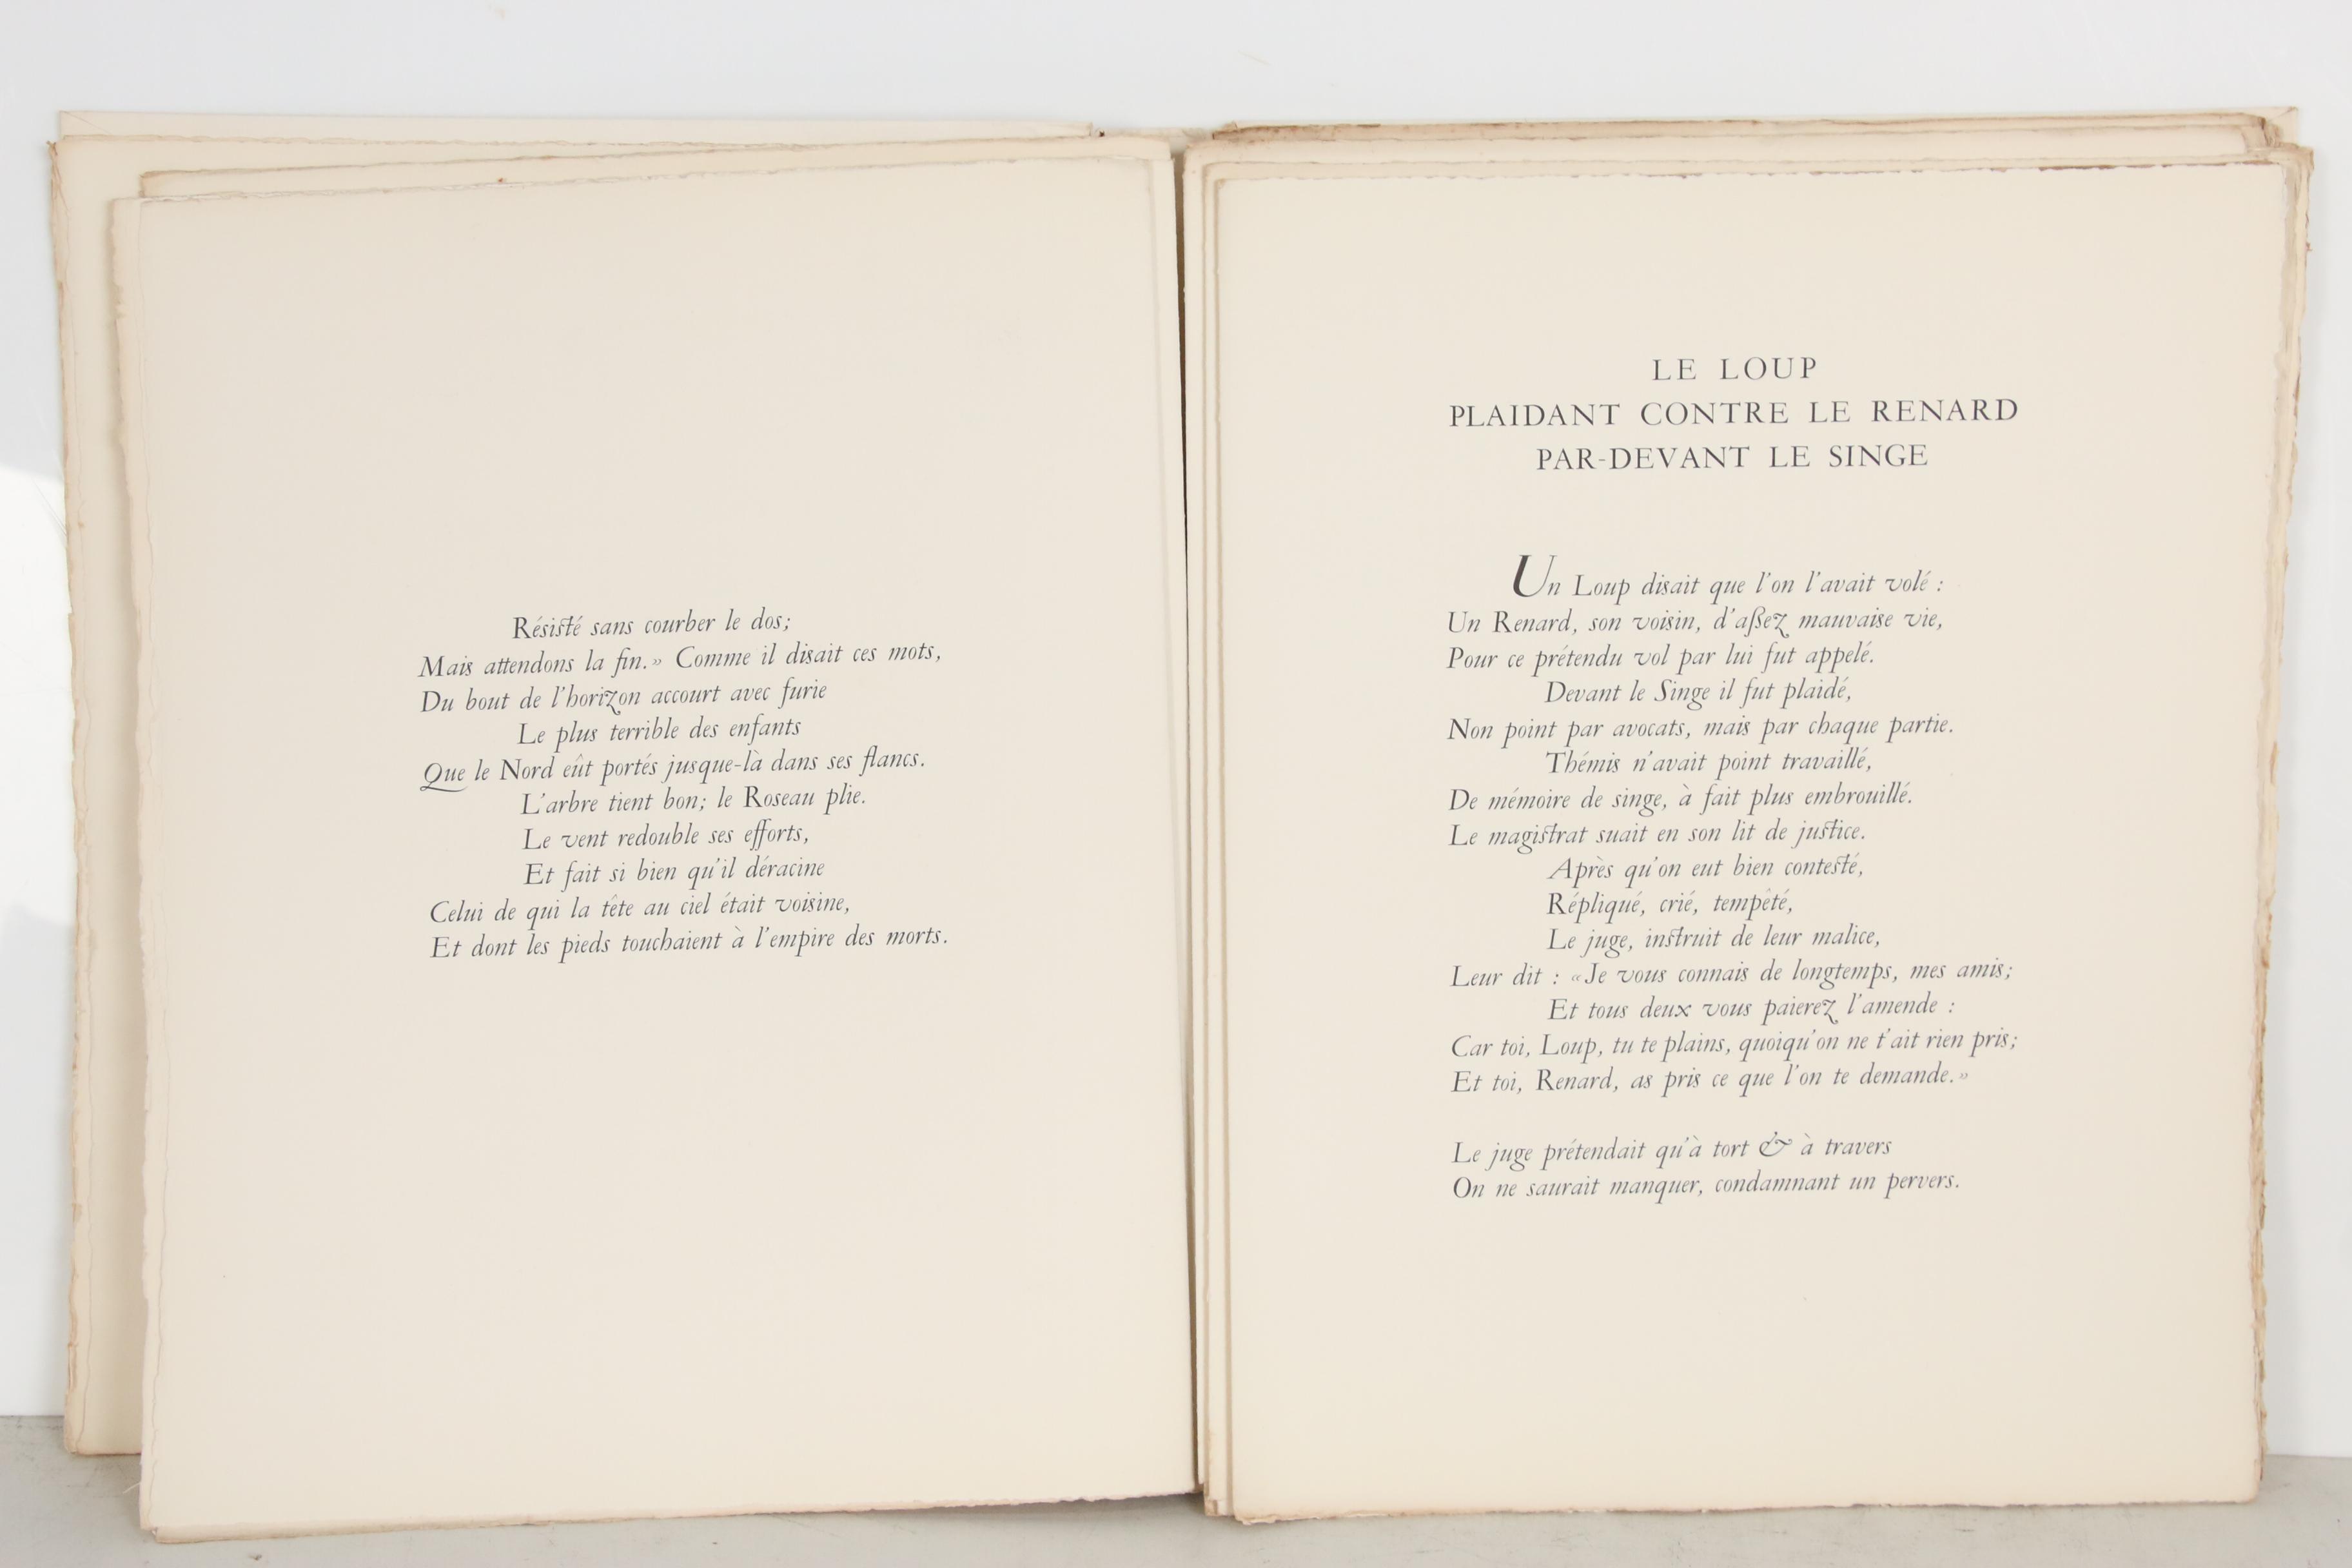 Résisté sans courber le dos;
Mais attendons la fin.» Comme il disait ces mots,
Du bout de l'horizon accourt avec furie
Le plus terrible des enfants
Que le Nord eût portés jusque-là dans ses flancs.
L'arbre tient bon; le Roseau plie.
Le vent redouble ses efforts,
Et fait si bien qu'il déracine
Celui de qui la tête au ciel était voisine,
Et dont les pieds touchaient à l'empire des morts.
LE LOUP
PLAIDANT CONTRE LE RENARD
PAR-DEVANT LE SINGE
Un Loup disait que l'on l'avait volé :
Un Renard, son voisin, d'aßez mauvaise vie,
Pour ce prétendu vol par lui fut appelé.
Devant le Singe il fut plaidé,
Non point par avocats, mais par chaque partie.
Thémis n'avait point travaillé,
De mémoire de singe, à fait plus embrouillé.
Le magistrat suait en son lit de justice.
Après qu'on eut bien contesté,
Répliqué, crié, tempêté,
Le juge, instruit de leur malice,
Leur dit : «Je vous connais de longtemps, mes amis;
Et tous deux vous paierez l'amende :
Car toi, Loup, tu te plains, quoiqu'on ne t'ait rien pris;
Et toi, Renard, as pris ce que l'on te demande.»
Le juge prétendait qu'à tort & à travers
On ne saurait manquer, condamnant un pervers.